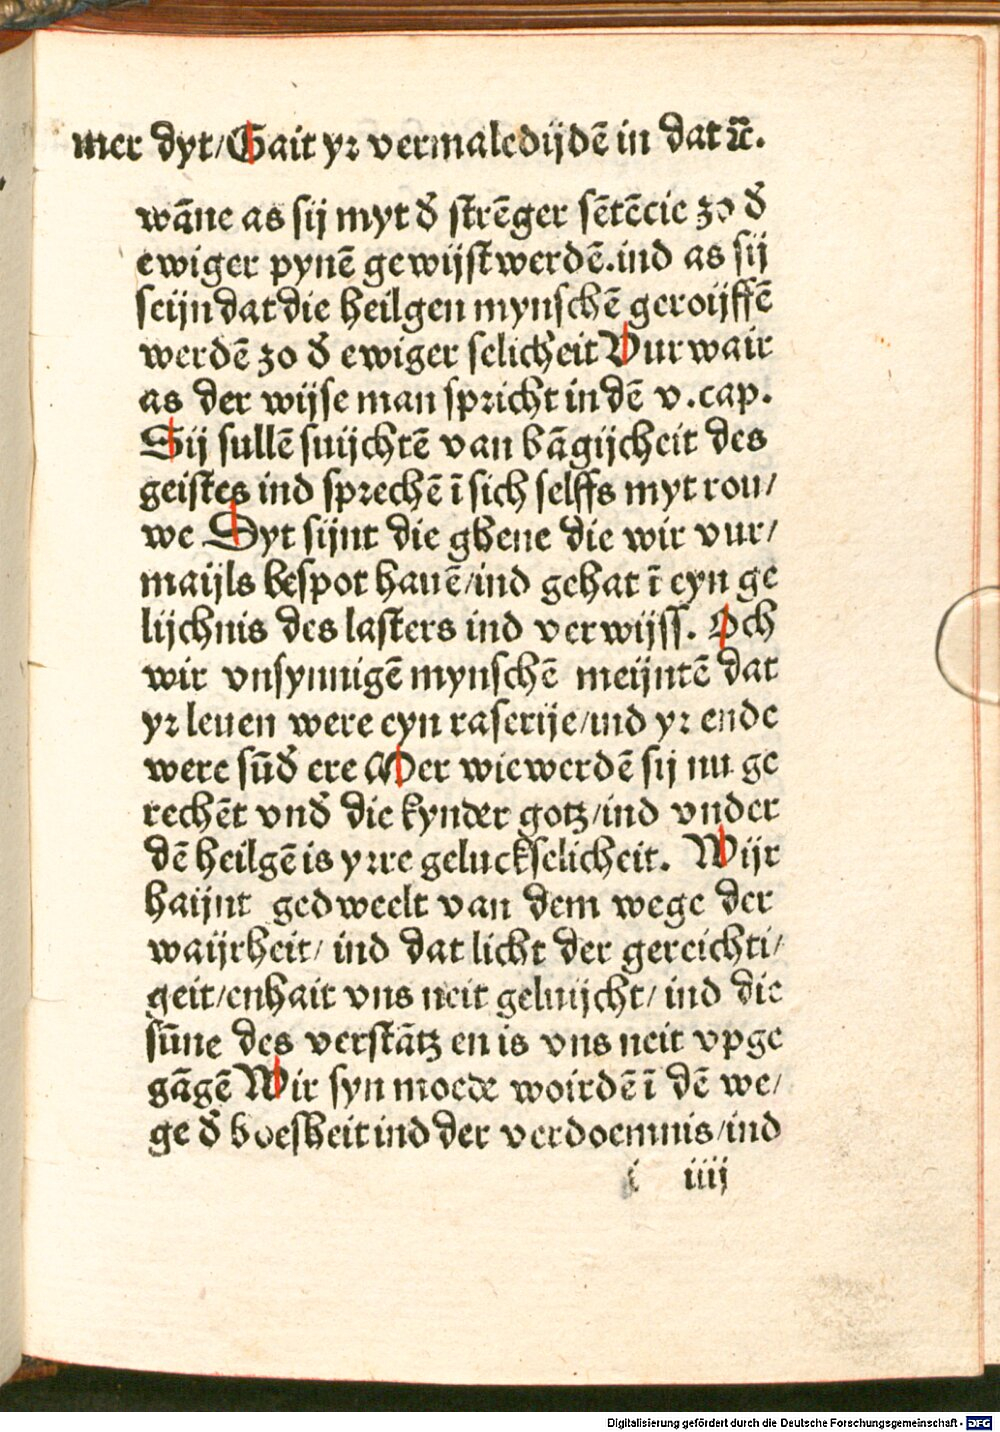 mer dyt/Gait yꝛ vermaledijdē in dat ⁊c̄.
wāne as sij myt d̕ strēger sētēcie zo d̕
ewiger pynē gewijst werdē.ind as sij
seijn dat die heilgen mynschē geroijffē
werdē zo d̕ ewiger selicheit Vurwair
as der wijse man spꝛicht in dē v.cap.
Sij sullē suijchtē van bāgijcheit des
geistes ind spꝛechē ī sich selffs myt rou/
we Dyt sijnt die ghene die wir vur/
maijls bespot hauē/ind gehat ī eyn ge
lijchnis des lasters ind verwijss. Och
wir vnsynnigē mynschē meijntē dat
yꝛ leuen were eyn raserije/ind yꝛ ende
were sūd̕ ere Mer wie werdē sij nu ge
rechēt vnd̕ die kynder gotz/ind vnder
dē heilgē is yꝛre geluckselicheit. Wijr
haijnt gedweelt van dem wege der
waijrheit/ ind dat licht der gereichti/
geit/enhait vns neit geluijcht/ ind die
sūne des verstātz en is vns neit vpge
gāgē Wir syn moede woirdē ī dē we/
ge d̕ boesheit ind der verdoemnis/ind
i iiij
Digitalisierung gefördert durch die Deutsche Forschungsgemeinschaft - DFG